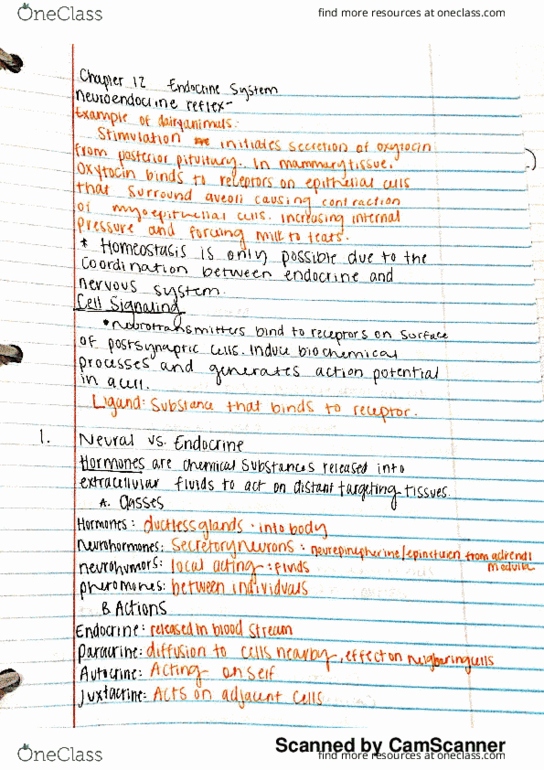 OneClass
find more resources at oneclass.com
Chapter 12 Endocrine System
neuroendocrine reflex-
Example of dairy animals:
Stimulation initiates secretion of oxytocin
from posterior pituitary. In mammary tissue.
Oxytocin binds to receptors on epithelial cells
that surround aveoli causing contraction
of myoepithelial cells. increasing internal
pressure and forcing milk to teats.
* Homeostasis is only possible due to the
coordination between endocrine and
nervous system.
Cell Signaling
•neurotransmitters bind to receptors on surface
of postsynaptic cells. Induce biochemical
processes and generates action potential
in a cell.
Ligand: Substance that binds to receptor.
1. Neural vs. Endocrine
Hormones are chemical substances released into
extracellular fluids to act on distant targeting tissues.
A. Classes
Hormones: ductless glands · into body
Neurohormones: Secretory neurons : from adrenal
medulla
neurohumors: local acting : fluids
pheromones: between individuals
B Actions
Endocrine: released in blood stream
Paracrine: diffusion to cells nearby, effect on neighboring cells
Autocrine: Acting on self
Juxtacrine: Acts on adjacent cells
Scanned by CamScanner
OneClass
find more resources at oneclass.com